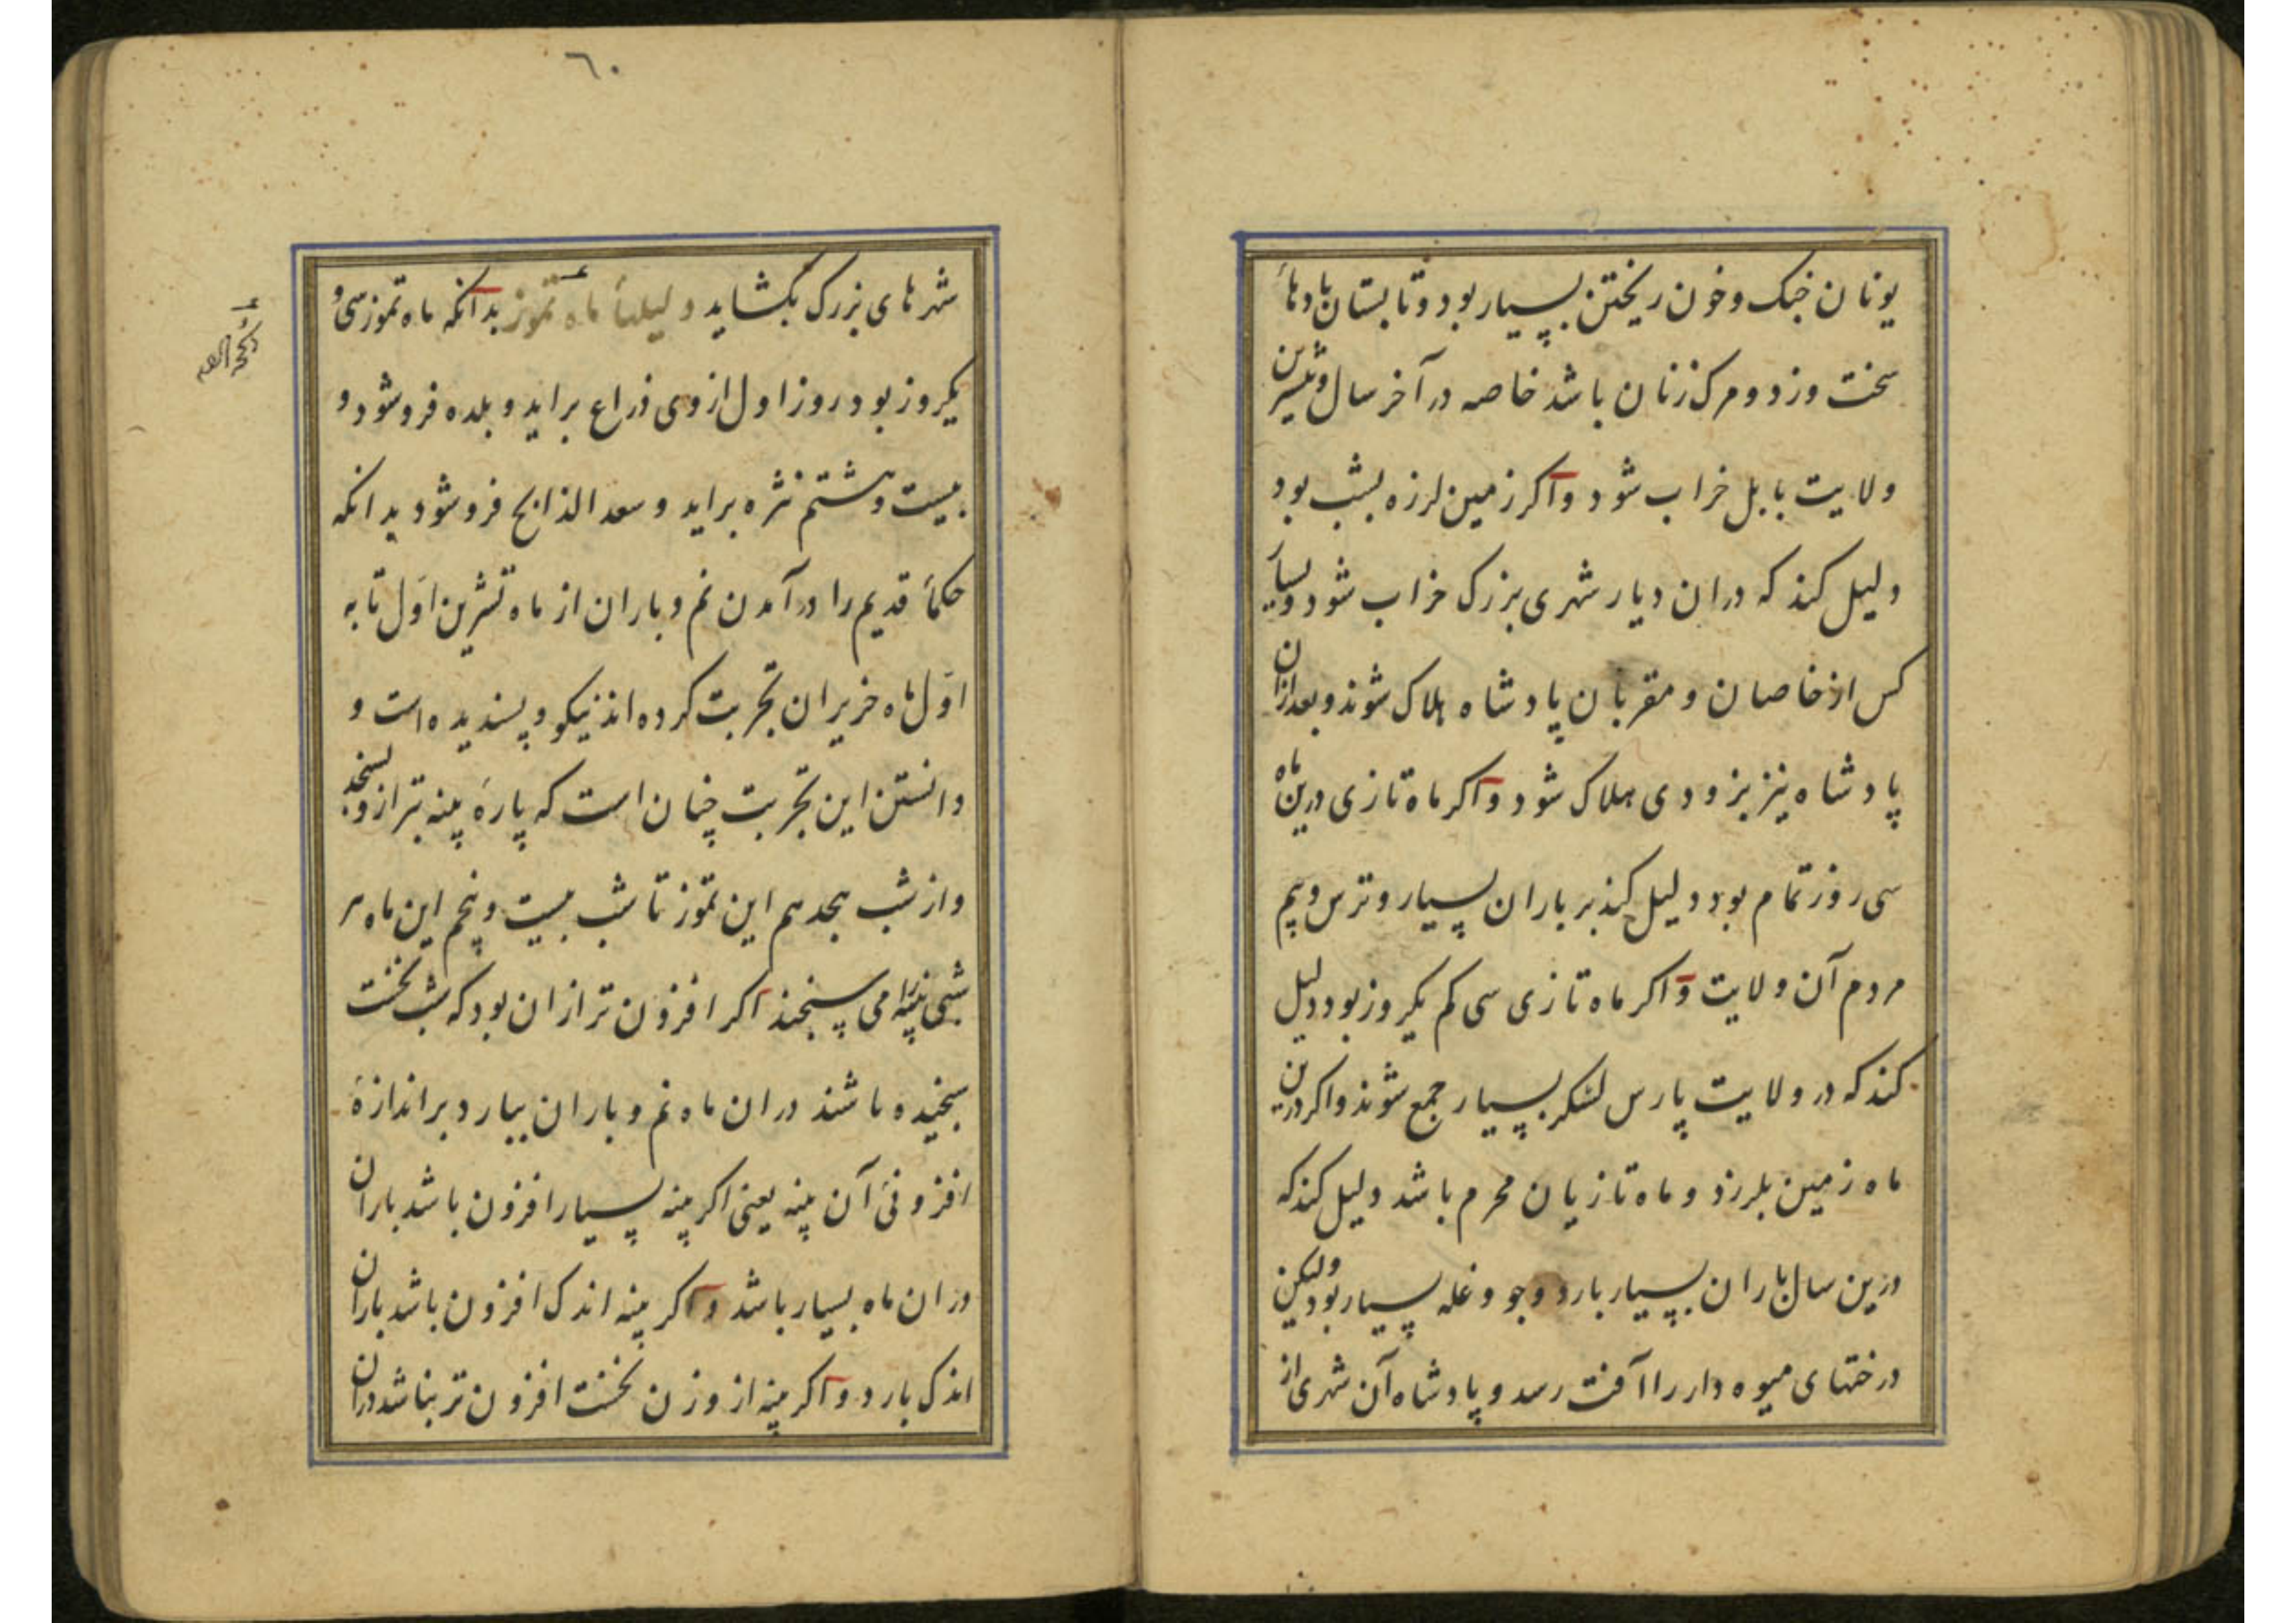 یونان جنک وخون ریختن بسیار بود وتابستان بادهاء
سخت وزد ومرک زنان باشد خاصه در آخر سال وبیشترین
ولایت بابل خراب شود واکر زمین لرزه بشب بود
دلیل کند که دران دیار شهری بزرک خراب شود وبسیار
کس از خاصان و مقربان پادشاه هلاک شوند وبعد ازان
پادشاه نیز بزودی هلاک شود واکر ماه تازی درین ماه
سی روز تمام بود دلیل کند بر باران بسیار وترس وبیم
مردم آن ولایت واکر ماه تازی سی کم یکروز بود دلیل
کند که در ولایت پارس لشکر بسیار جمع شوند واکر درین
ماه زمین بلرزد و ماه تازیان محرم باشد دلیل کند که
درین سال باران بسیار بارد وجو و غله بسیار بود ولیکن
درختهای میوه دار را آفت رسد و پادشاه آن شهری از
٦٠
شهرهای بزرک بکشاید دلیلهاء ماه تموز بدانکه ماه تموز سی و
یکروز بود روز اول ازوی ذراع براید و بلده فروشود و
بیست وهشتم نثره براید و سعد الذابح فروشود بدانکه
حکماء قدیم را در آمدن نم و باران از ماه تشرین اوّل تا به
اوّل ماه خزیران تجربت کرده اند نیکو و پسندیده است و
دانستن این تجربت چنان است که پارهٔ پنبه بترازو بسنجد
واز شب هجدهم این تموز تا شب بیست وپنجم این ماه هر
شبی پنبه را می سنجند اکر افزون تر ازان بود که شب نخست
سنجیده باشند دران ماه نم و باران ببارد بر اندازهٔ
افزونیٔ آن پنبه یعنی اکر پنبه بسیار افزون باشد باران
دران ماه بسیار باشد واکر پنبه اندک افزون باشد باران
اندک بارد واکر پنبه از وزن نخست افزون تر نباشد دران